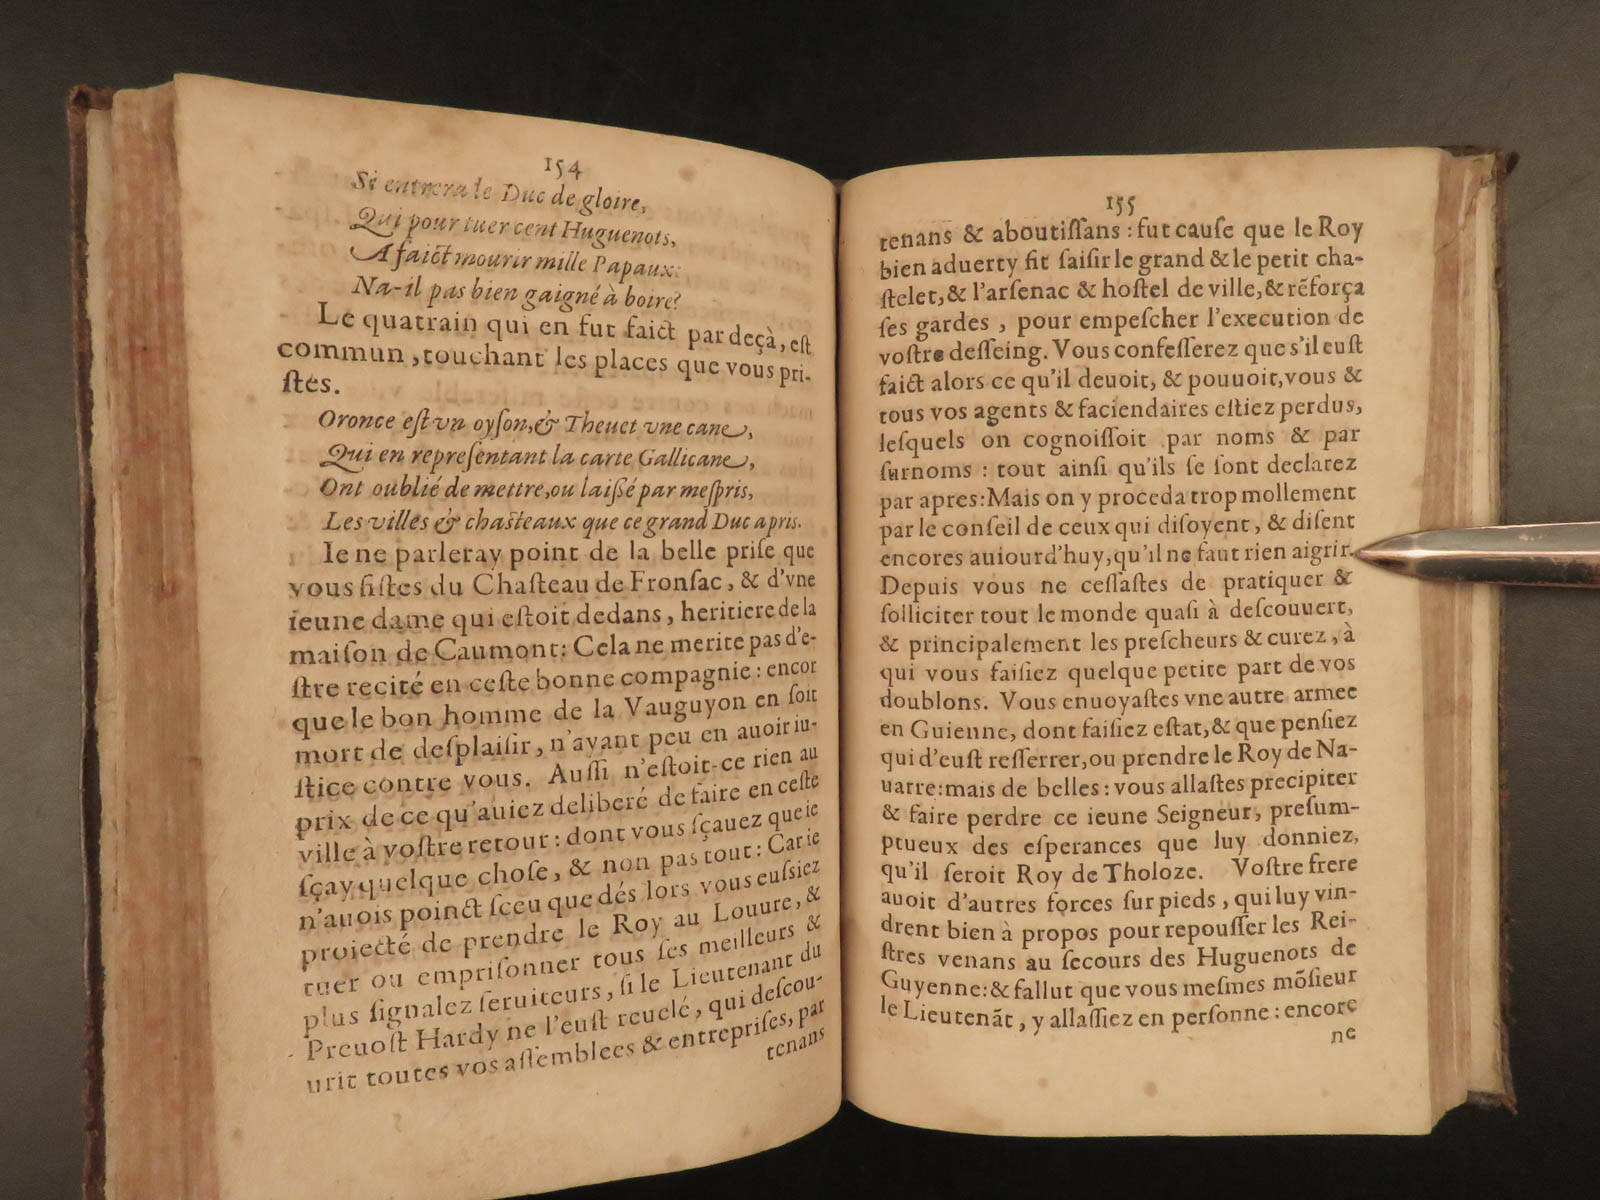 154
Si entrera le Duc de gloire,
Qui pour tuer cent Huguenots,
A faict mourir mille Papaux:
Na-il pas bien gaigné à boire?
Le quatrain qui en fut faict par deçà, eſt
commun, touchant les places que vous pri-
ſtes.
Oronce eſt vn oyſon, & Theuet vne cane,
Qui en repreſentant la carte Gallicane,
Ont oublié de mettre, ou laiſſé par meſpris,
Les villes & chaſteaux que ce grand Duc a pris.
Ie ne parleray point de la belle priſe que
vous fiſtes du Chaſteau de Fronſac, & d'vne
ieune dame qui eſtoit dedans, heritiere de la
maiſon de Caumont: Cela ne merite pas d'e-
ſtre recité en ceſte bonne compagnie: encor
que le bon homme de la Vauguyon en ſoit
mort de deſplaiſir, n'ayant peu en auoir iu-
ſtice contre vous. Auſſi n'eſtoit-ce rien au
prix de ce qu'auiez deliberé de faire en ceſte
ville à voſtre retour: dont vous ſçauez que ie
ſçay quelque choſe, & non pas tout: Car ie
n'auois poinct ſceu que dés lors vous euſsiez
proiecté de prendre le Roy au Louure, &
tuer ou empriſonner tous ſes meilleurs &
plus ſignalez ſeruiteurs, ſi le Lieutenant du
Preuoſt Hardy ne l'euſt reuelé, qui deſcou-
urit toutes vos aſſemblees & entrepriſes, par
tenans
155
tenans & aboutiſſans: fut cauſe que le Roy
bien aduerty fit ſaiſir le grand & le petit cha-
ſtelet, & l'arſenac & hoſtel de ville, & rẽforça
ſes gardes, pour empeſcher l'execution de
voſtre deſſeing. Vous confeſſerez que s'il euſt
faict alors ce qu'il deuoit, & pouuoit, vous &
tous vos agents & faciendaires eſtiez perdus,
leſquels on cognoiſſoit par noms & par
ſurnoms: tout ainſi qu'ils ſe ſont declarez
par apres: Mais on y proceda trop mollement
par le conſeil de ceux qui diſoyent, & diſent
encores auiourd'huy, qu'il ne faut rien aigrir.
Depuis vous ne ceſſaſtes de pratiquer &
ſolliciter tout le monde quaſi à deſcouuert,
& principalement les preſcheurs & curez, à
qui vous faiſiez quelque petite part de vos
doublons. Vous enuoyaſtes vne autre armee
en Guienne, dont faiſiez eſtat, & que penſiez
qui d'euſt reſſerrer, ou prendre le Roy de Na-
uarre: mais de belles: vous allaſtes precipiter
& faire perdre ce ieune Seigneur, preſum-
ptueux des eſperances que luy donniez,
qu'il ſeroit Roy de Tholoze. Voſtre frere
auoit d'autres forces ſur pieds, qui luy vin-
drent bien à propos pour repouſſer les Rei-
ſtres venans au ſecours des Huguenots de
Guyenne: & fallut que vous meſmes mõſieur
le Lieutenãt, y allaſſiez en perſonne: encore
ne